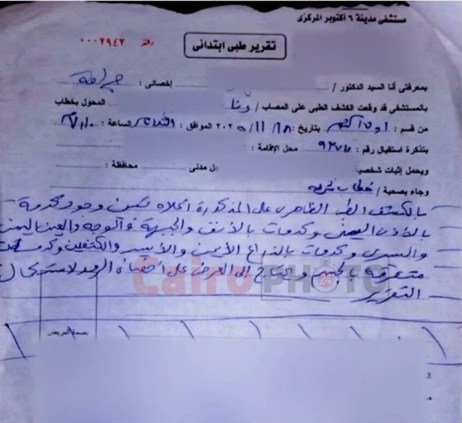 مستشفى مدينة ٦ أكتوبر المركزى
تقرير طبى ابتدائى
رقم ٠٠٠٢٩٤٢
بمعرفتى أنا السيد الدكتور / إخصائى : جراحة
بالمستشفى قد وقعت الكشف الطبى على المصاب / المحول بخطاب
من قسم : أول أكتوبر بتاريخ : ١٨ / ١١ / ٢٠٢٥ الموافق : الثلاثاء الساعة :
بتذكرة استقبال رقم : محل الإقامة :
ويحمل إثبات شخصية مدنى محافظة :
وجاء بصحبة / خطاب شرطة
بالكشف الطبى الظاهرى على المذكورة أعلاه تبين وجود
بالأذن اليمنى وكدمات بالأنف والجبهة والوجه والعين اليمنى
واليسرى وكدمات بالذراع الأيمن والأيسر والكتفين
متفرقة بالجسم وتحتاج إلى العرض على أخصائى الرمد لاستكمال
التقرير
Cairo PHOTO